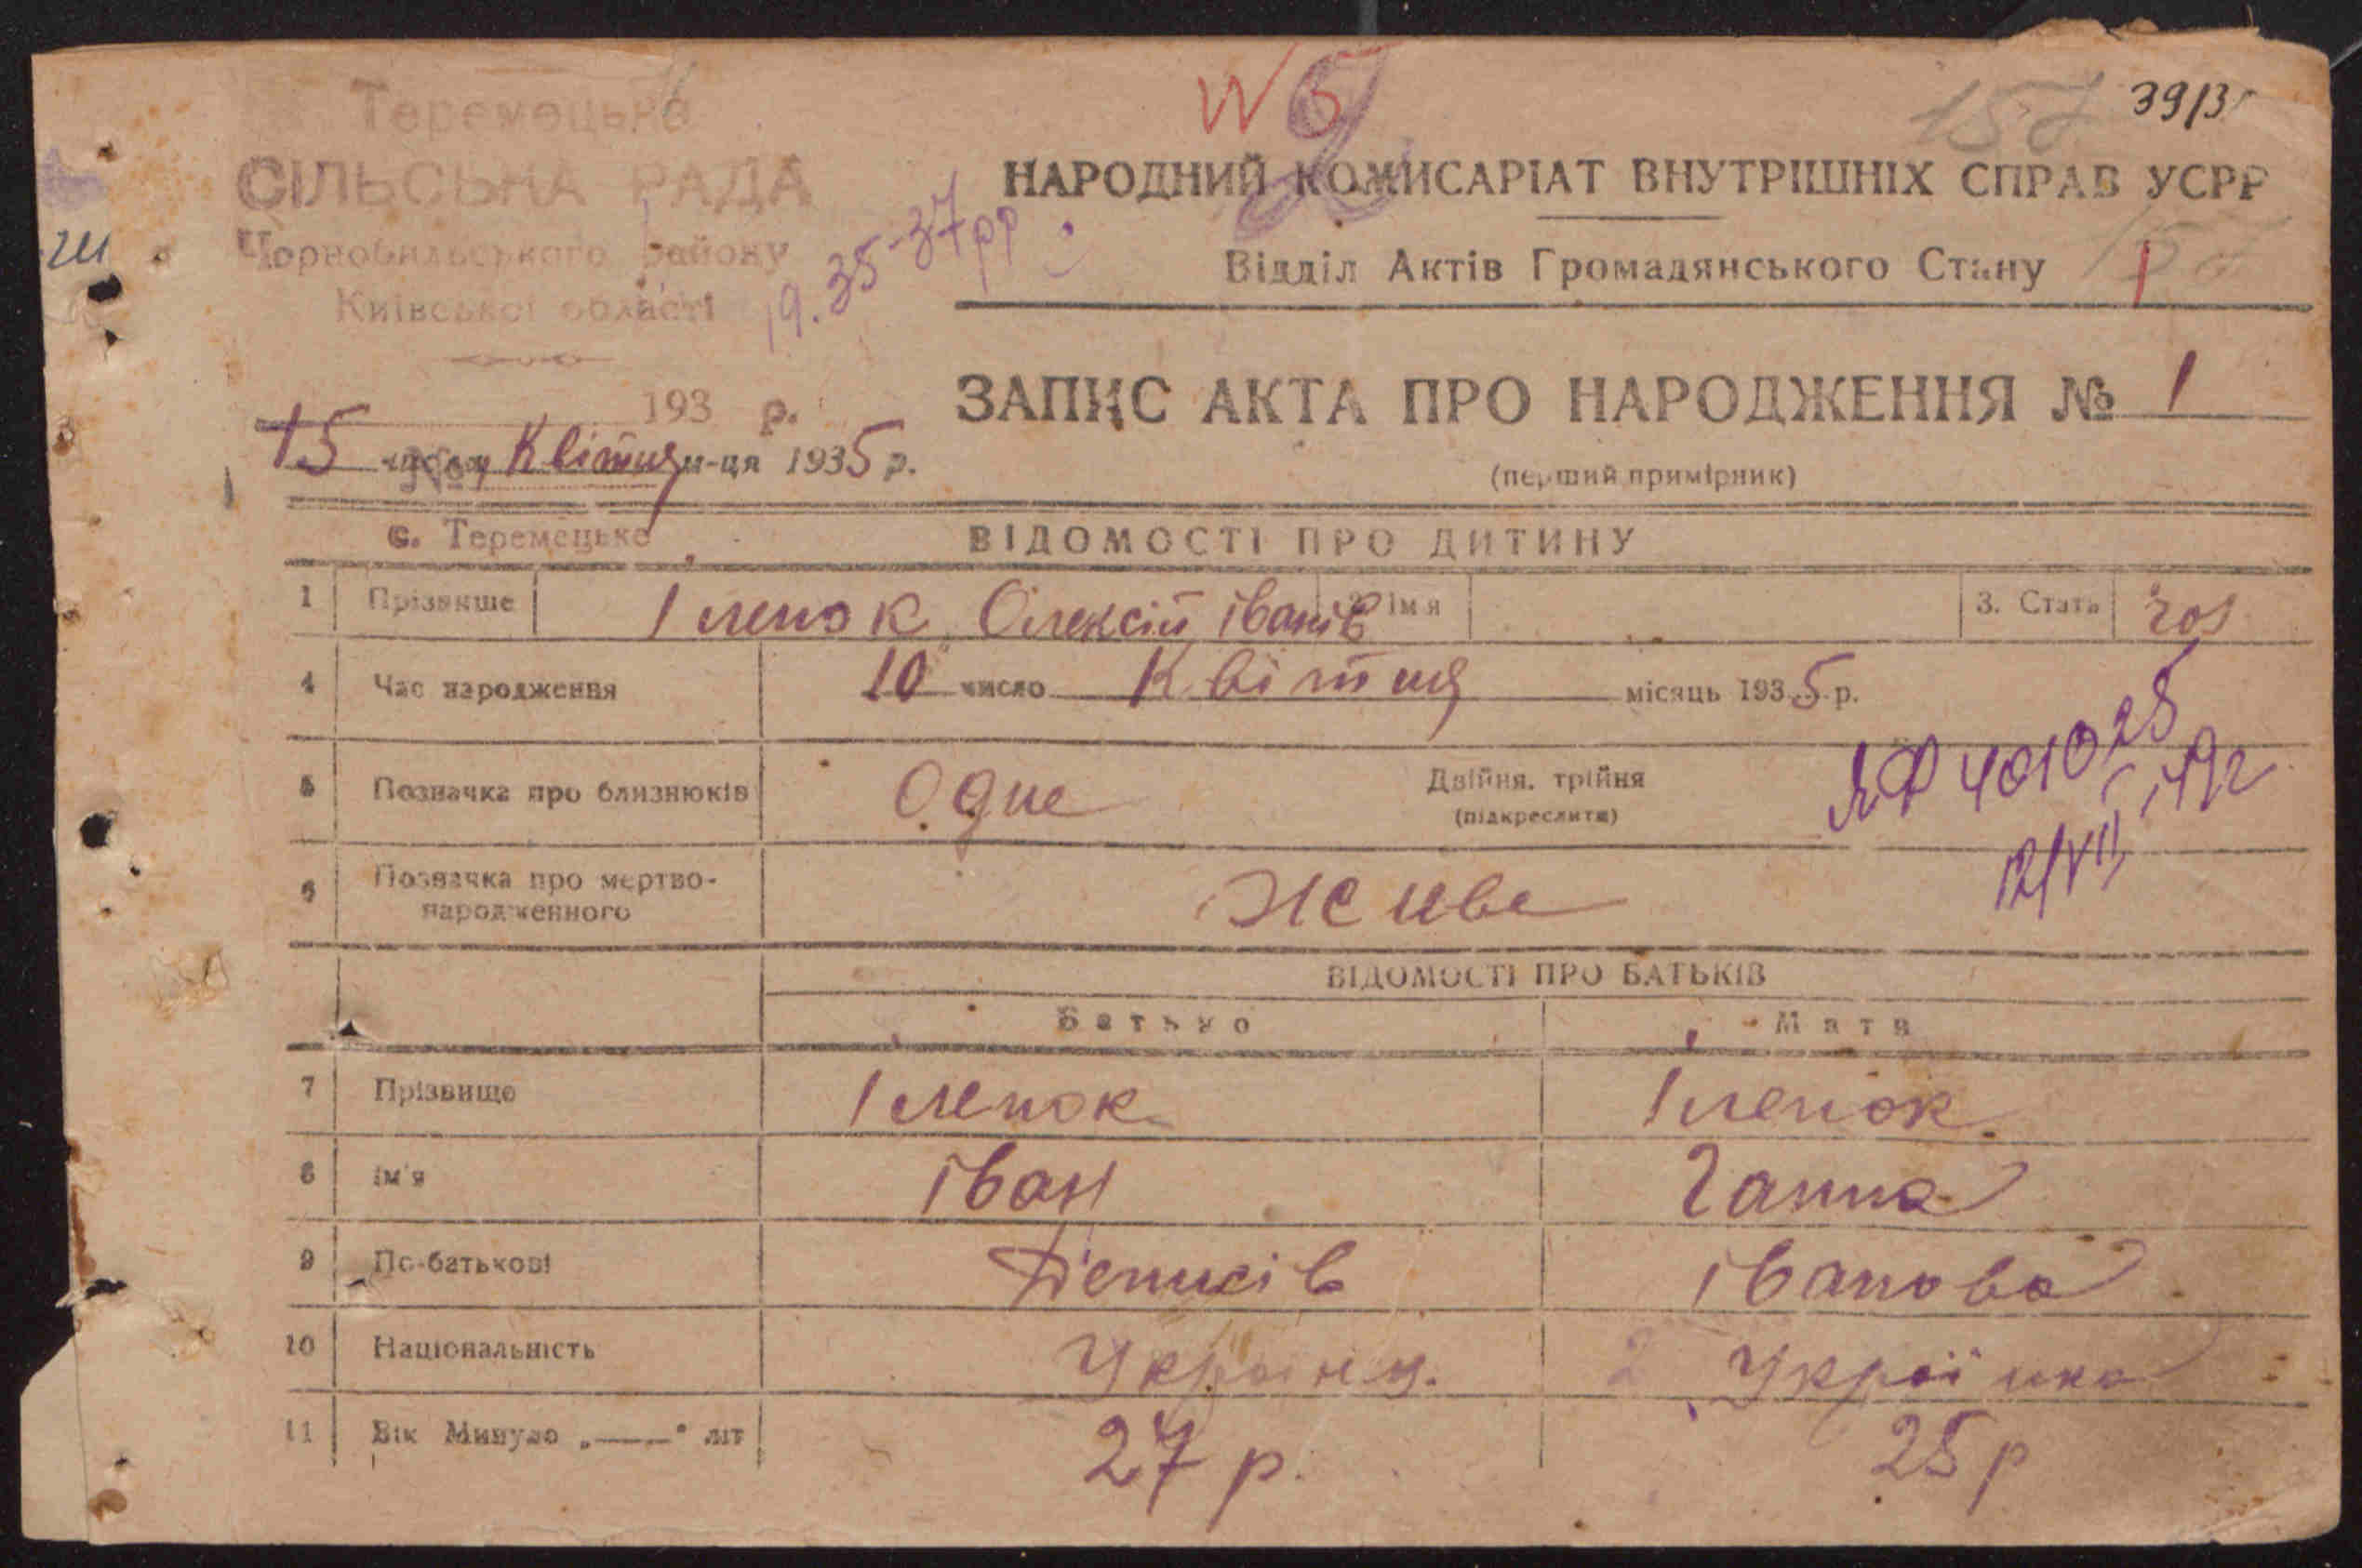 Теремецька
СІЛЬСЬКА РАДА
Чорнобильського району
Київської області
193 р.
№
с. Теремецьке
19.35-37рр
N 5
157
39/35
НАРОДНИЙ КОМИСАРІАТ ВНУТРІШНІХ СПРАВ УСРР
Відділ Актів Громадянського Стану
157
1
ЗАПИС АКТА ПРО НАРОДЖЕННЯ № 1
15 числа Квітня м-ця 1935 р.
(перший примірник)
ВІДОМОСТІ ПРО ДИТИНУ
1 Прізвище Іленок Олексій Іванів 2. Ім'я 3. Стать чол
4 Час народження 10 число Квітня місяць 1935 р.
5 Позначка про близнюків Одне Двійня, трійня
(підкреслити)
ЯФ 401025
12/VII 49г
6 Позначка про мертво-
народженного Живе
ВІДОМОСТІ ПРО БАТЬКІВ
Батько Мати
7 Прізвище Іленок Іленок
8 Ім'я Іван Ганна
9 По-батькові Денисів Іванова
10 Національність Українц. Українка
11 Вік Минуло „——“ літ 27 р. 25 р